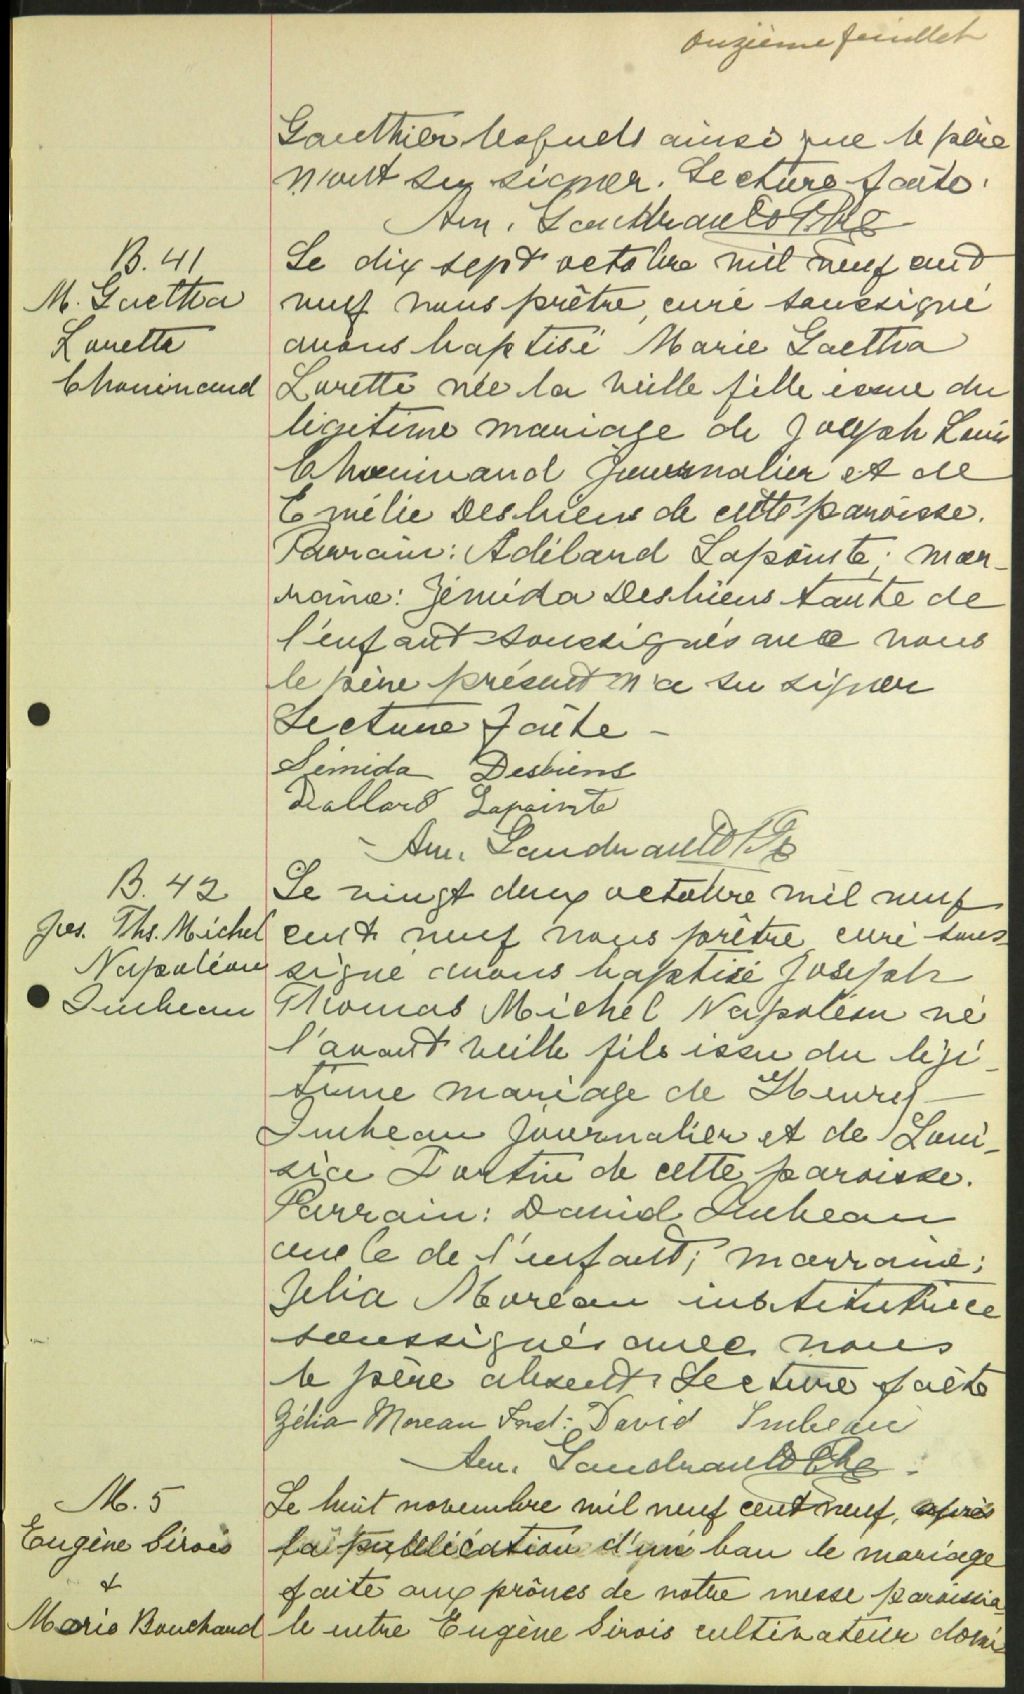 onzième feuillet
Gauthier lesquels ainsi que le père
n'ont su signer. Lecture faite.
Am. Gaudreault Ptre
B. 41
M. Gaetha
Lorette
Chouinard
Le dix sept octobre mil neuf cent
neuf nous prêtre, curé soussigné
avons baptisé Marie Gaetha
Lorette née la veille fille issue du
légitime mariage de Joseph Louis
Chouinard journalier et de
Emélie Desbiens de cette paroisse.
Parrain: Adélard Lapointe; mar-
raine: Zémida Desbiens tante de
l'enfant soussignés avec nous
le père présent n'a su signer
Lecture faite -
Sémida Desbiens
Lapointe
Am. Gaudreault Ptre
B. 42
Jos. Ths. Michel
Napoléon
Imbeau
Le vingt deux octobre mil neuf
cent neuf nous prêtre curé sous-
signé avons baptisé Joseph
Thomas Michel Napoléon né
l'avant veille fils issu du légi-
time mariage de Henry
Imbeau journalier et de Loui-
sia Fortin de cette paroisse.
Parrain: David Imbeau
oncle de l'enfant; marraine;
Zélia Moreau institutrice
soussignés avec nous
le père absent. Lecture faite
Zélia Moreau Inst: David Imbeau
Am. Gaudreault Ptre
M. 5
Eugène Sirois
&
Marie Bouchard
Le huit novembre mil neuf cent neuf, après
la publication d'un ban le mariage
faite aux prônes de notre messe paroissia-
le entre Eugène Sirois cultivateur domi-